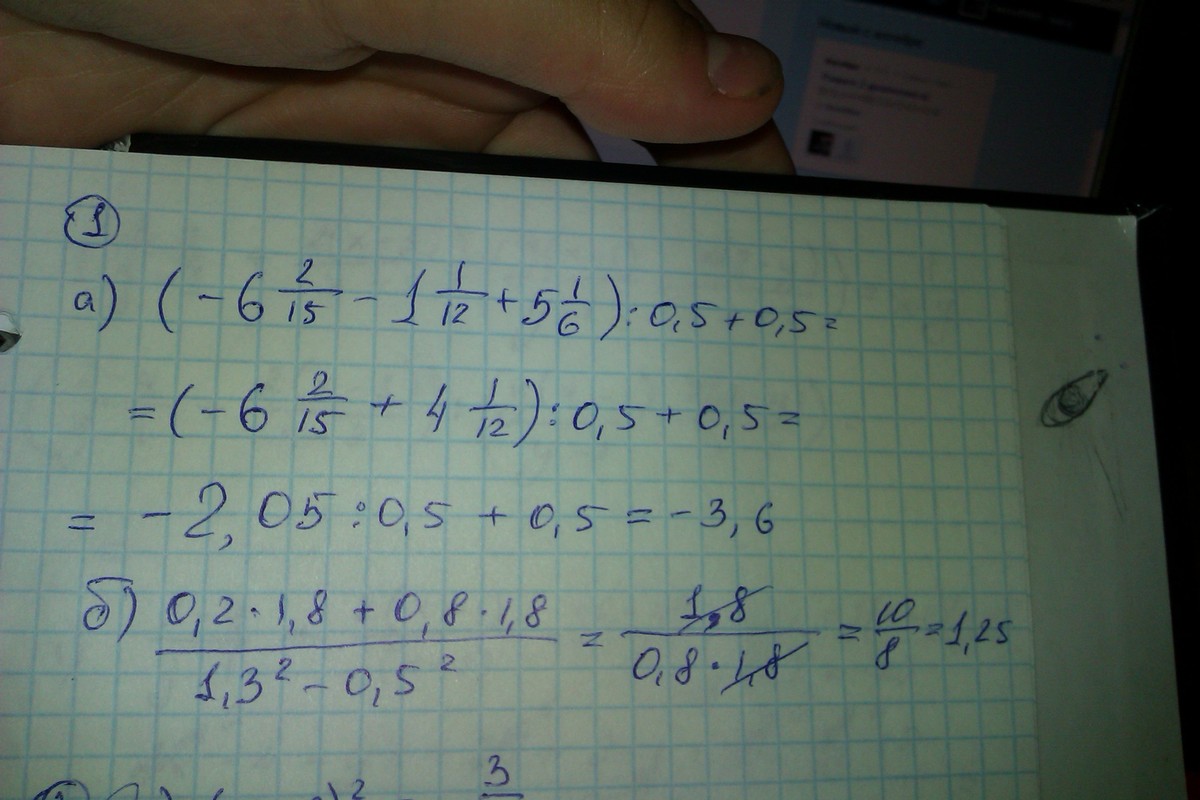 1
а) (-6 2/15 - 1 1/12 + 5 1/6) : 0,5 + 0,5 =
= (-6 2/15 + 4 1/12) : 0,5 + 0,5 =
= -2,05 : 0,5 + 0,5 = -3,6
б) (0,2 · 1,8 + 0,8 · 1,8)/(1,3² - 0,5²) = 1,8/(0,8 · 1,8) = 10/8 = 1,25